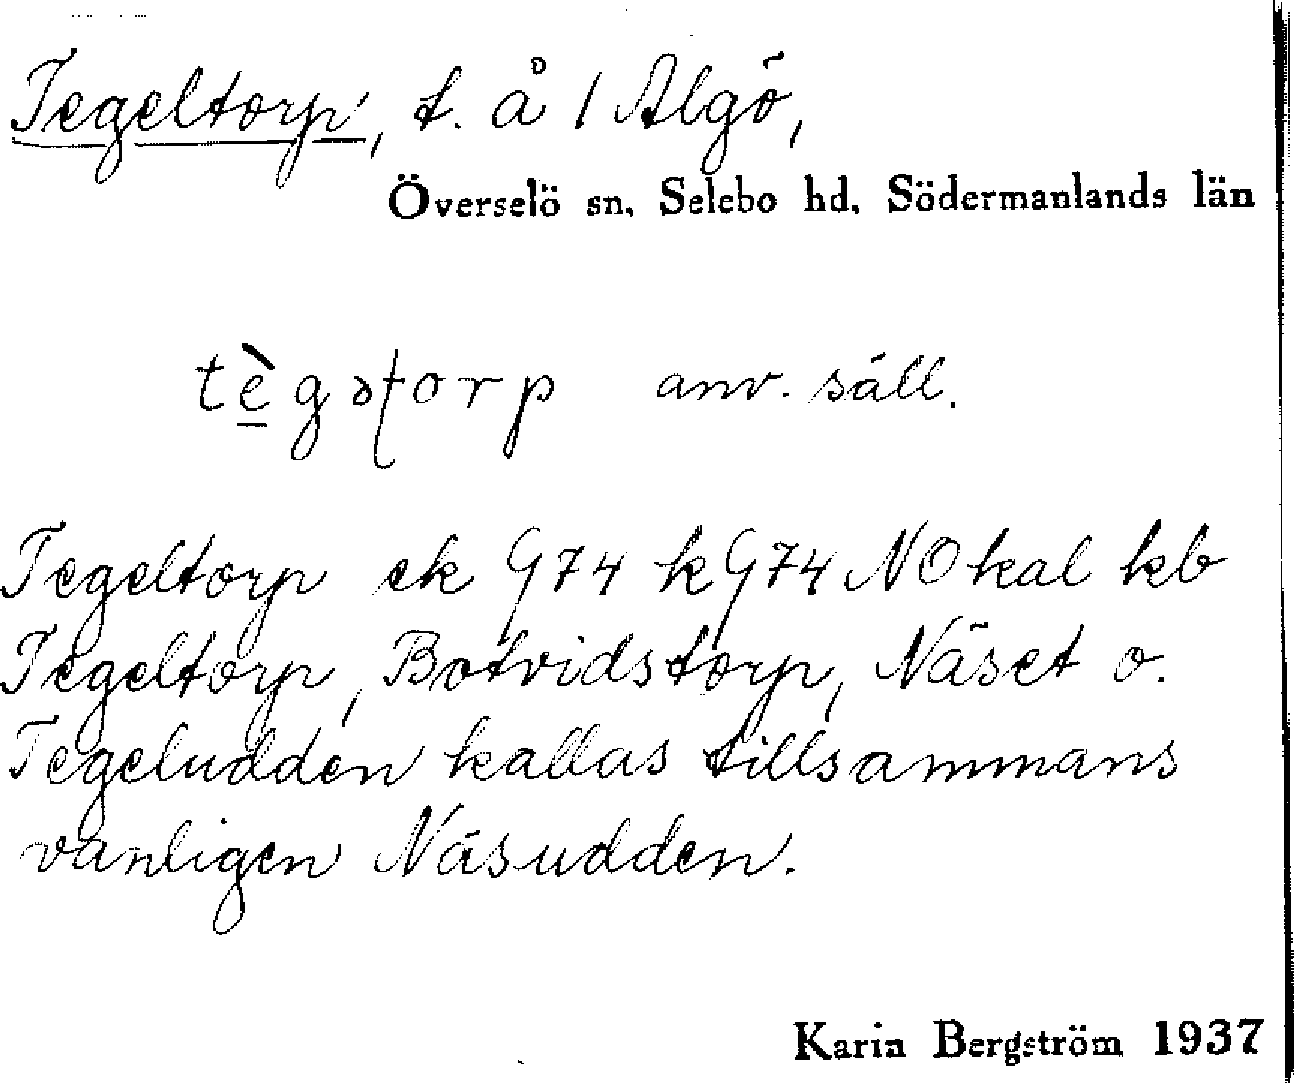 Tegeltorp, t. å 1 Algö,
Överselö sn, Selebo hd, Södermanlands län
tè̱gəʈorp anv. säll.
Tegeltorp ek G74 kG74 NOkal kb
Tegeltorp, Botvidstorp, Näset o.
Tegeludden kallas tillsammans
vanligen Näsudden.
Karin Bergström 1937